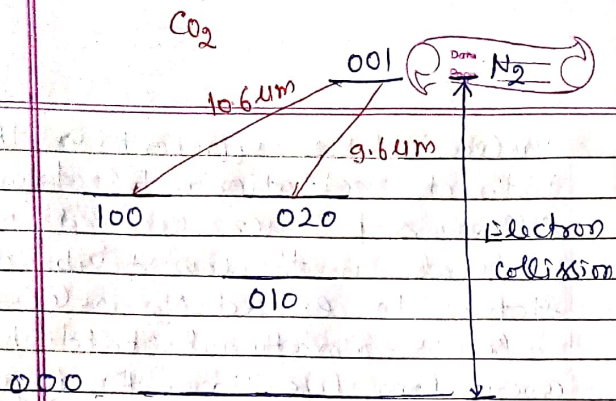 CO2
001
Date
Page
N2
10.6 um
9.6 um
100
020
Electron
collission
010
000